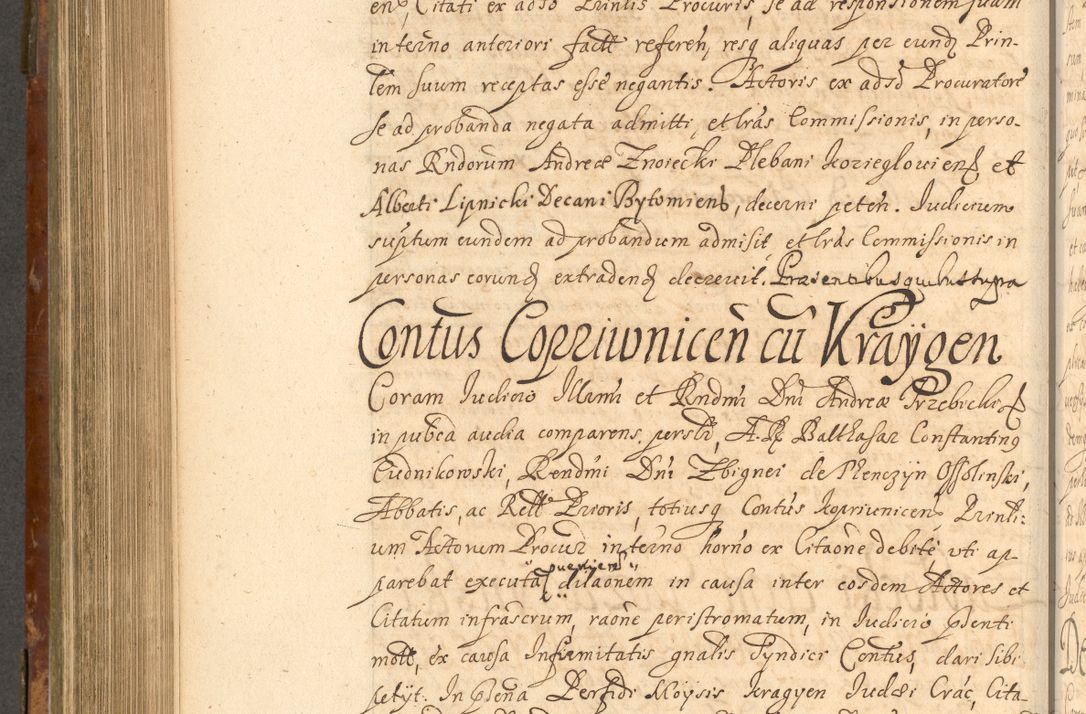 en, Citati ex adso Prinlis Procuris, se ad responsionem suam
in terno anteriori factt referen, resq aliquas per eund Prin-
lem suum receptas esse negantis. Actoris ex adso Procuratore
se ad probanda negata admitti, et lras Commissionis, in perso-
nas Rndorum Andreæ Znoiecki Plebani Kozieglovien et
Alberti Lipnicki Decani Bytomiens, decerni peten. Iudicium
suptum eundem ad probandum admisit et lras Commissionis in
personas eorund extradend decrevit. Præsentibus quibus supra
Contus Copriwnicen cu Kraygen
Coram Iudicio Illrmi et Rndmi Dni Andreæ Trzebicki
in pubca audia comparens persłr, A. R. Balthasar Constantinq
Cudnikowski, Rendmi Dni Zbignei de Thenczyn Ossolinski,
Abbatis, ac Rełł Prioris, totiusq Contus Kopriunicen Prinli-
um Actorum Procur in terno horno ex Citaone debite, uti ap-
parebat executa, dilaonem in causa inter eosdem Actores et
Citatum infrascrum, raone peristromatum, in Iudicio pñenti
mott, ex causa Infirmitatis gnalis Syndici Contus, dari sibi
petyt. In pñena Perfidi Moysis Kragyen Iudæi Crac, Cita-